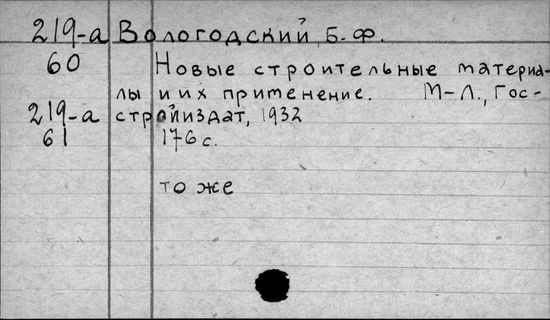 219-а Вологодский, Б. Ф.
60 Новые строительные материа-
лы и их применение. М-Л., Гос-
219-а стройиздат, 1932
61 176 с.
то же